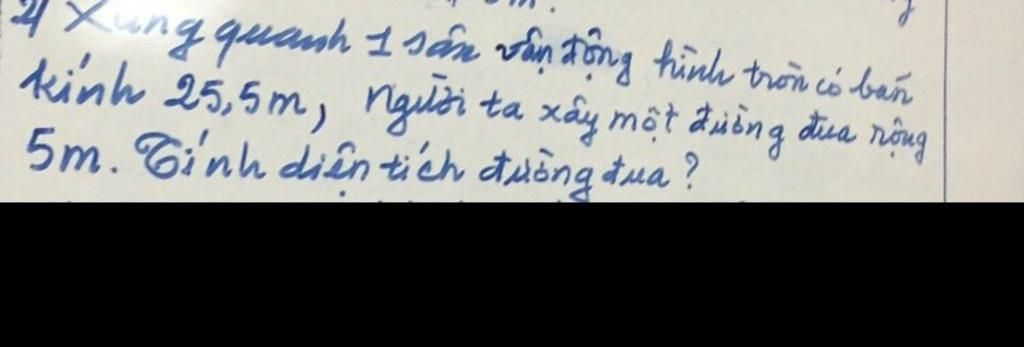 2) Xung quanh 1 sân vận động hình tròn có bán
kính 25,5m, người ta xây một đường đua rộng
5m. Tính diện tích đường đua?